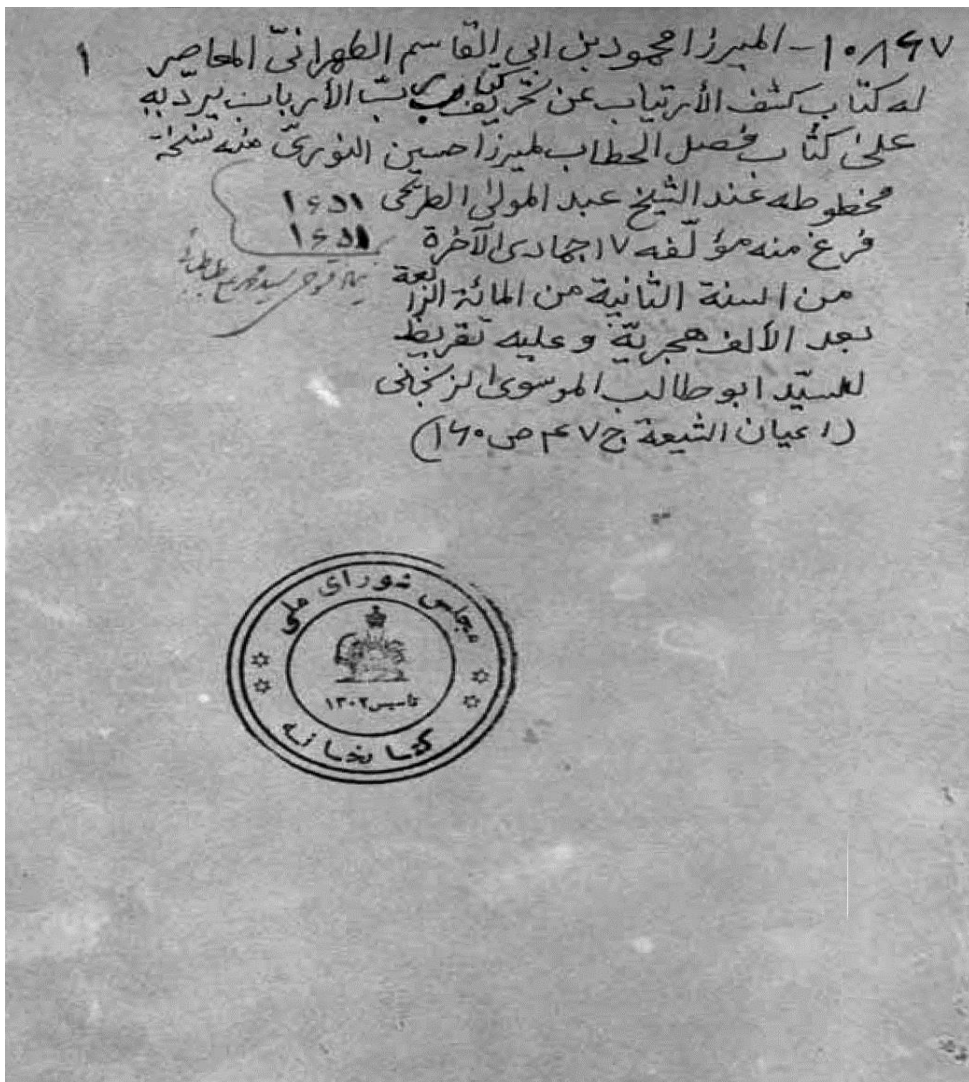 ١٠٨٦٧ - الميرزا محمود بن ابي القاسم الطهرانيّ المعاصر ١
له كتاب كشف الأرتياب عن تحريف كتاب ربّ الأرباب يرد به
على كتاب فصل الخطاب لميرزا حسين النوريّ منه نسخة
مخطوطه عند الشيخ عبد المولى الطريحى
فرغ منه مؤلّفه ١٧ جمادى الآخرة
من السنة الثانية من المائة الرابعة
بعد الألف هجريّة و عليه تقريظ
للسيّد ابو طالب الموسوى الزنجانى
(اعيان الشيعة ج ٤٧ ص ١٦٠)
١٦٥١
١٦٥١
مجلس شورای ملی
تاسیس ۱۳۰۲
کتابخانه